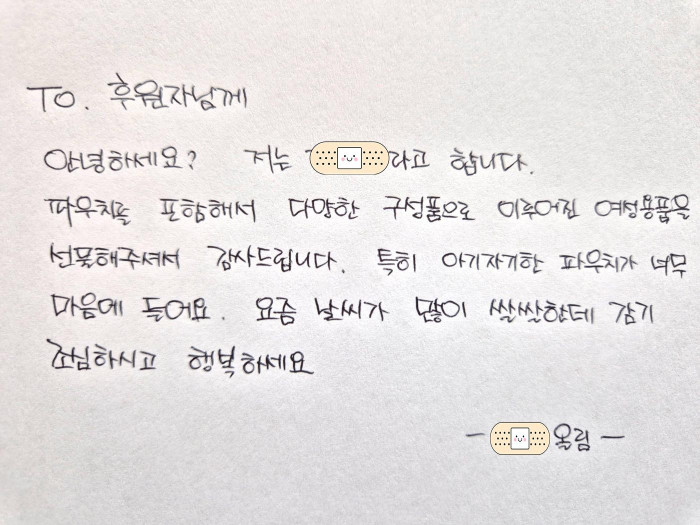 TO. 후원자님께
안녕하세요? 저는 라고 합니다.
파우치를 포함해서 다양한 구성품으로 이루어진 여성용품을
선물해주셔서 감사드립니다. 특히 아기자기한 파우치가 너무
마음에 들어요. 요즘 날씨가 많이 쌀쌀한데 감기
조심하시고 행복하세요
- 올림 -